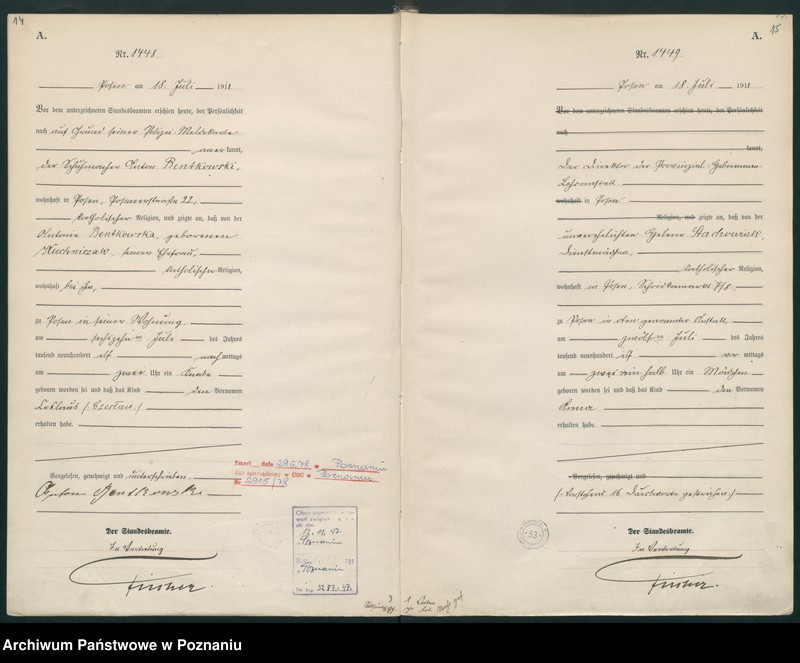 14
A.
Nr. 1448
Posen am 18. Juli 1911
Vor dem unterzeichneten Standesbeamten erschien heute, der Persönlichkeit
nach auf Grund seiner Polizei-Meldekarte
anerkannt,
der Schuhmacher Anton Bentkowski,
wohnhaft in Posen, Posenerstrasse 22,
katholischer Religion, und zeigte an, daß von der
Antonie Bentkowska, geborenen
Kuchniczak, seiner Ehefrau,
katholischer Religion,
wohnhaft bei ihm,
zu Posen in seiner Wohnung
am sechzehnten Juli des Jahres
tausend neunhundert elf nachmittags
um zwei Uhr ein Knabe
geboren worden sei und daß das Kind den Vornamen
Ceslaus (: Czeslaw :)
erhalten habe.
Vorgelesen, genehmigt und unterschrieben.
Anton Bentkowski
Der Standesbeamte.
In Vertretung
Fischer.
Zmarł data 29.5.78 w Poznaniu
Akt sporządzony w USC w Poznaniu
Nr 2915/78
17.11.47
Poznaniu
15
A.
Nr. 1449
Posen am 18. Juli 1911
Vor dem unterzeichneten Standesbeamten erschien heute, der Persönlichkeit
nach
kannt,
Der Direktor der Provinzial-Hebammen-
Lehranstalt
wohnhaft in Posen
Religion, und zeigte an, daß von der
unverehelichten Helene Stachowiak,
Dienstmädchen,
katholischer Religion,
wohnhaft in Posen, 7/8
zu Posen in oben genannter Anstalt
am zwölften Juli des Jahres
tausend neunhundert elf vor mittags
um zwei ein halb Uhr ein Mädchen
geboren worden sei und daß das Kind den Vornamen
Anna
erhalten habe.
Vorgelesen, genehmigt und
(: Vorstehend 16 Druckworte gestrichen :)
Der Standesbeamte.
In Vertretung
Fischer.
53
Archiwum Państwowe w Poznaniu